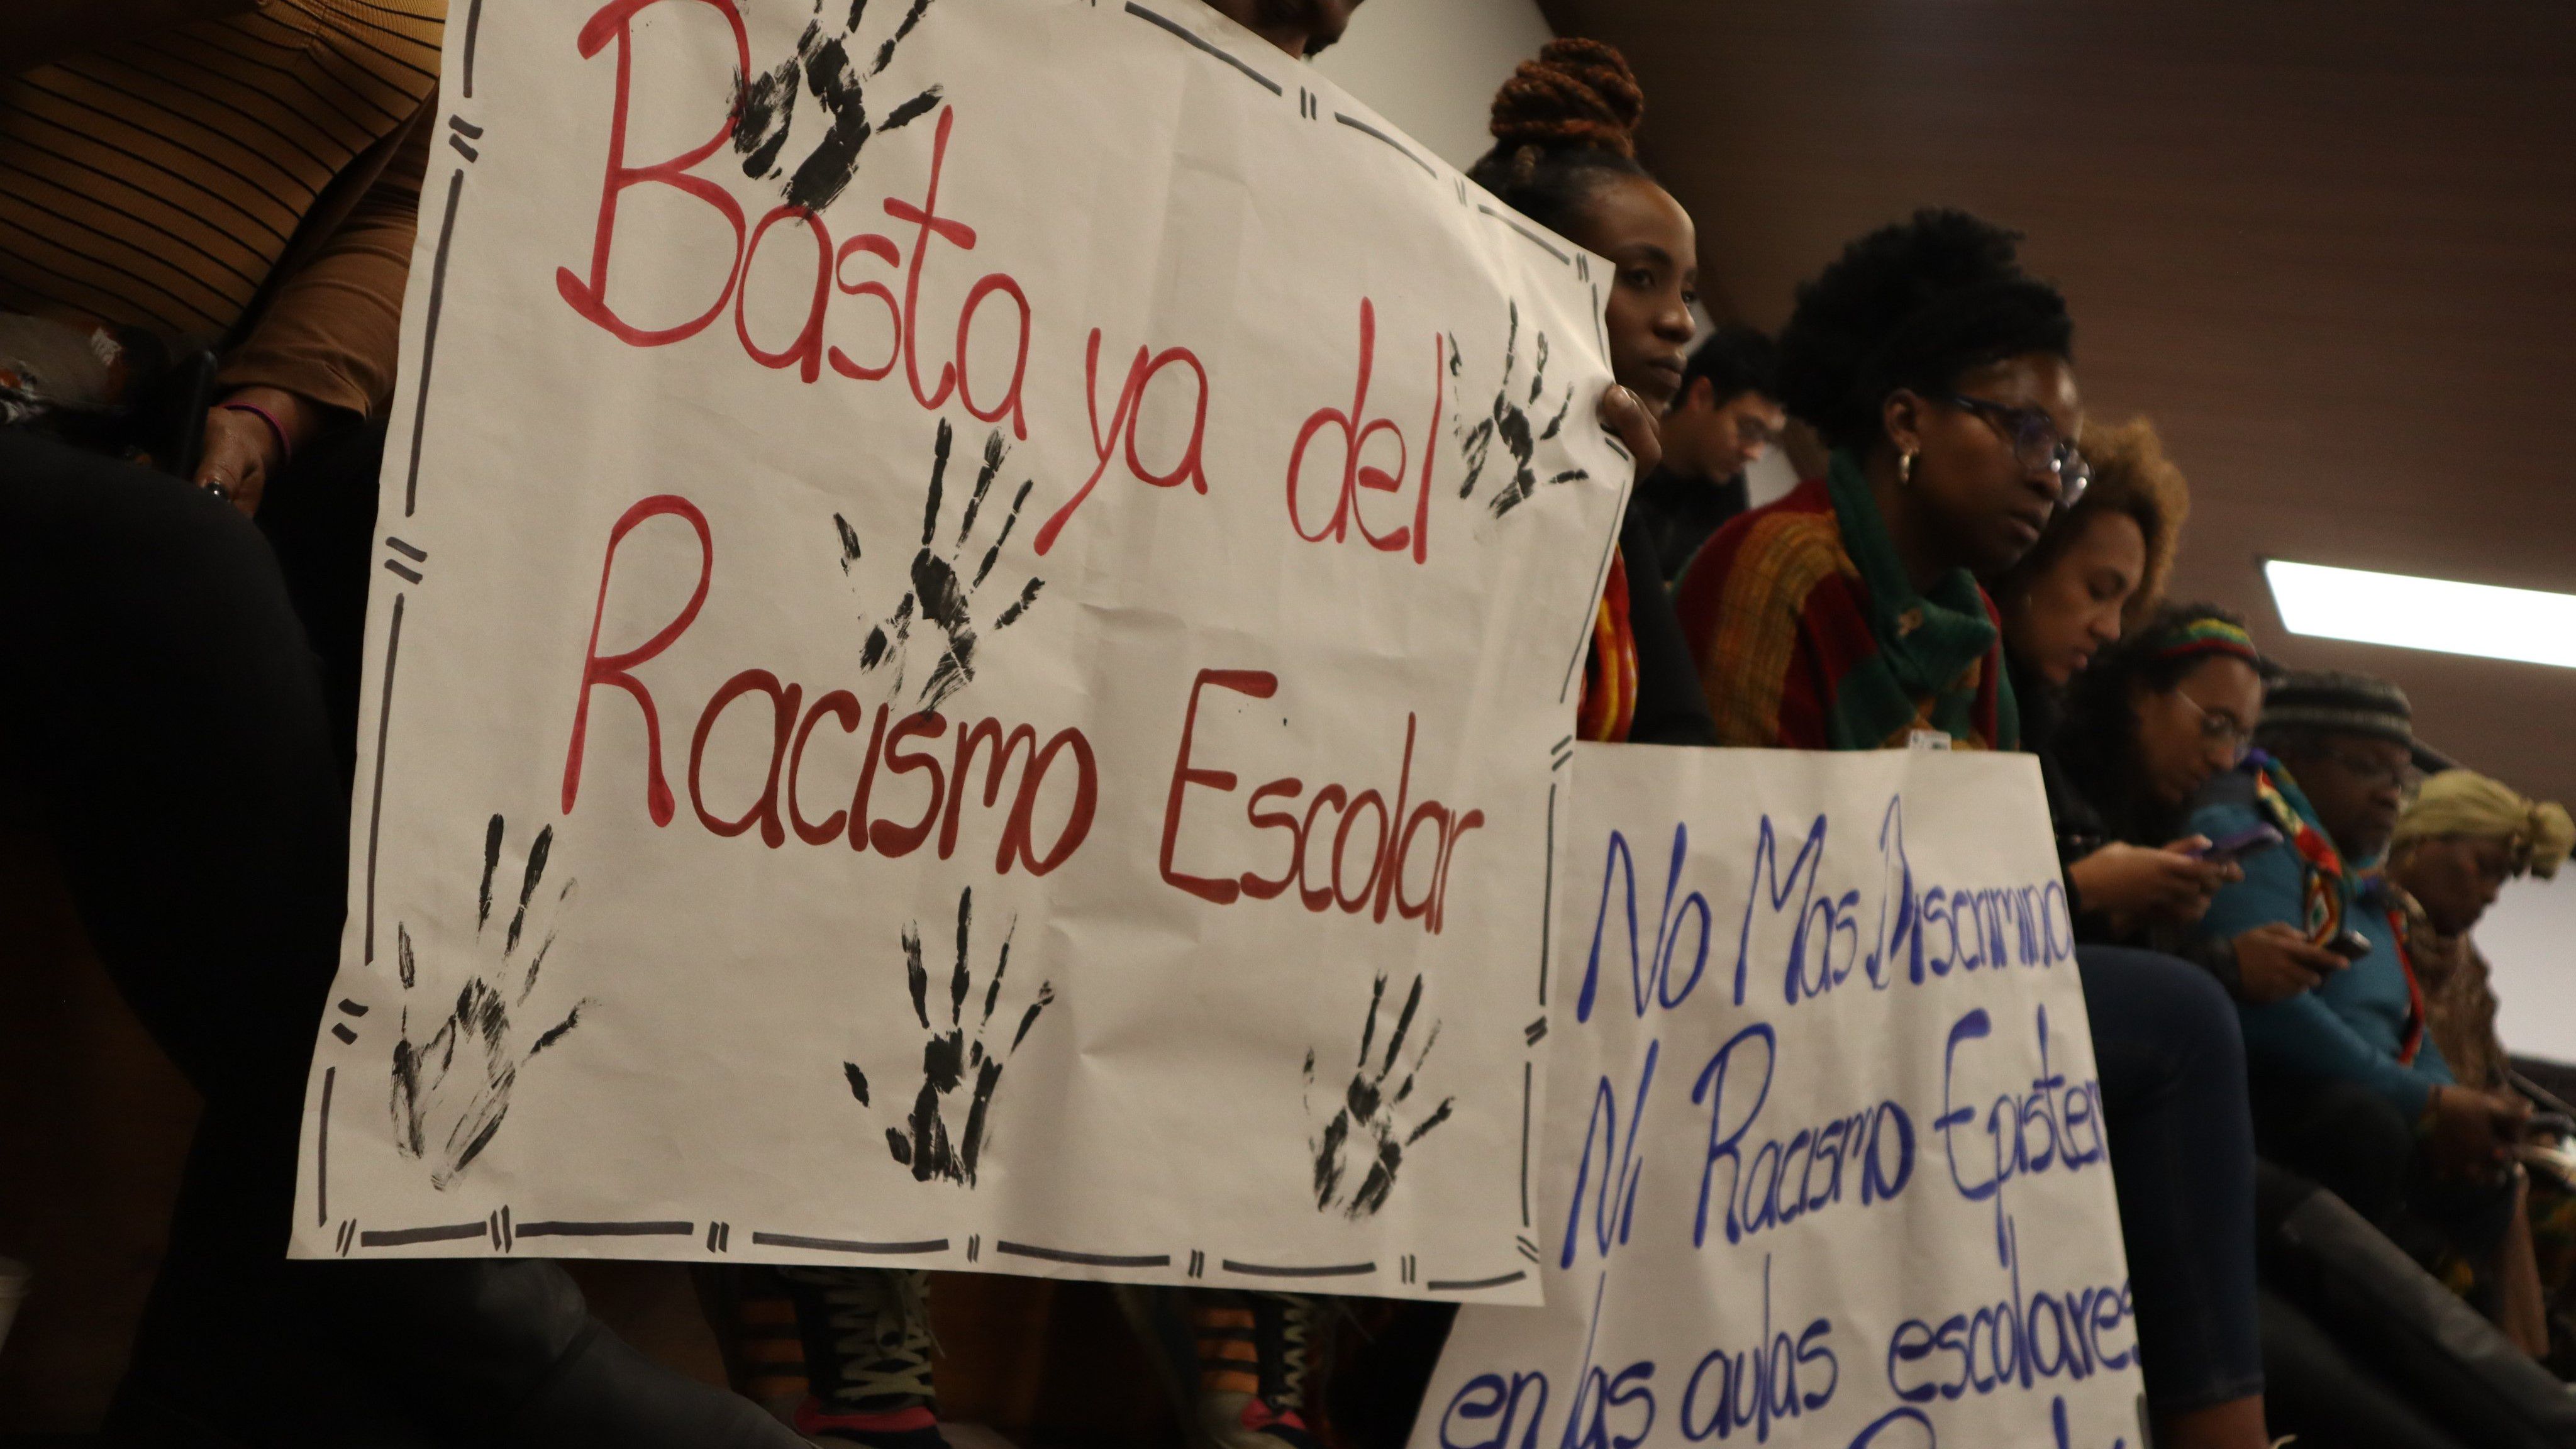 Basta ya del
Racismo Escolar
No Mas Discrimina
Ni Racismo Epistem
en las aulas escolares